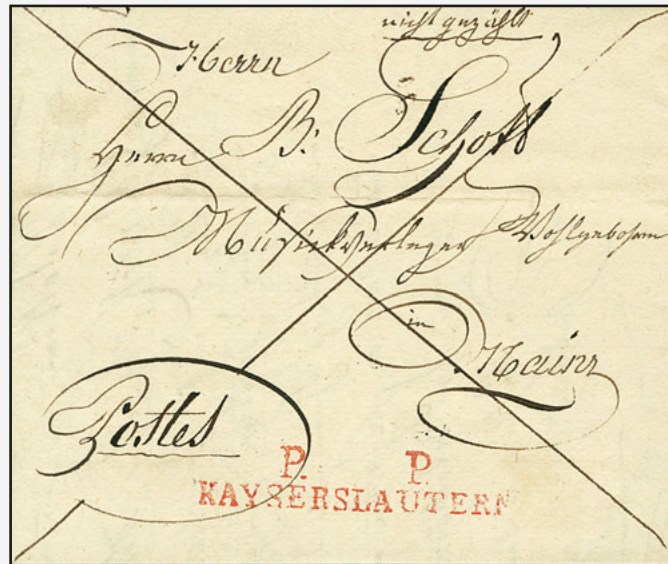 nicht gezählt
Herrn
Herrn B: Schott
Musickverleger Wohlgebohrn
in
Mainz
Postes
P. P.
KAYSERSLAUTERN